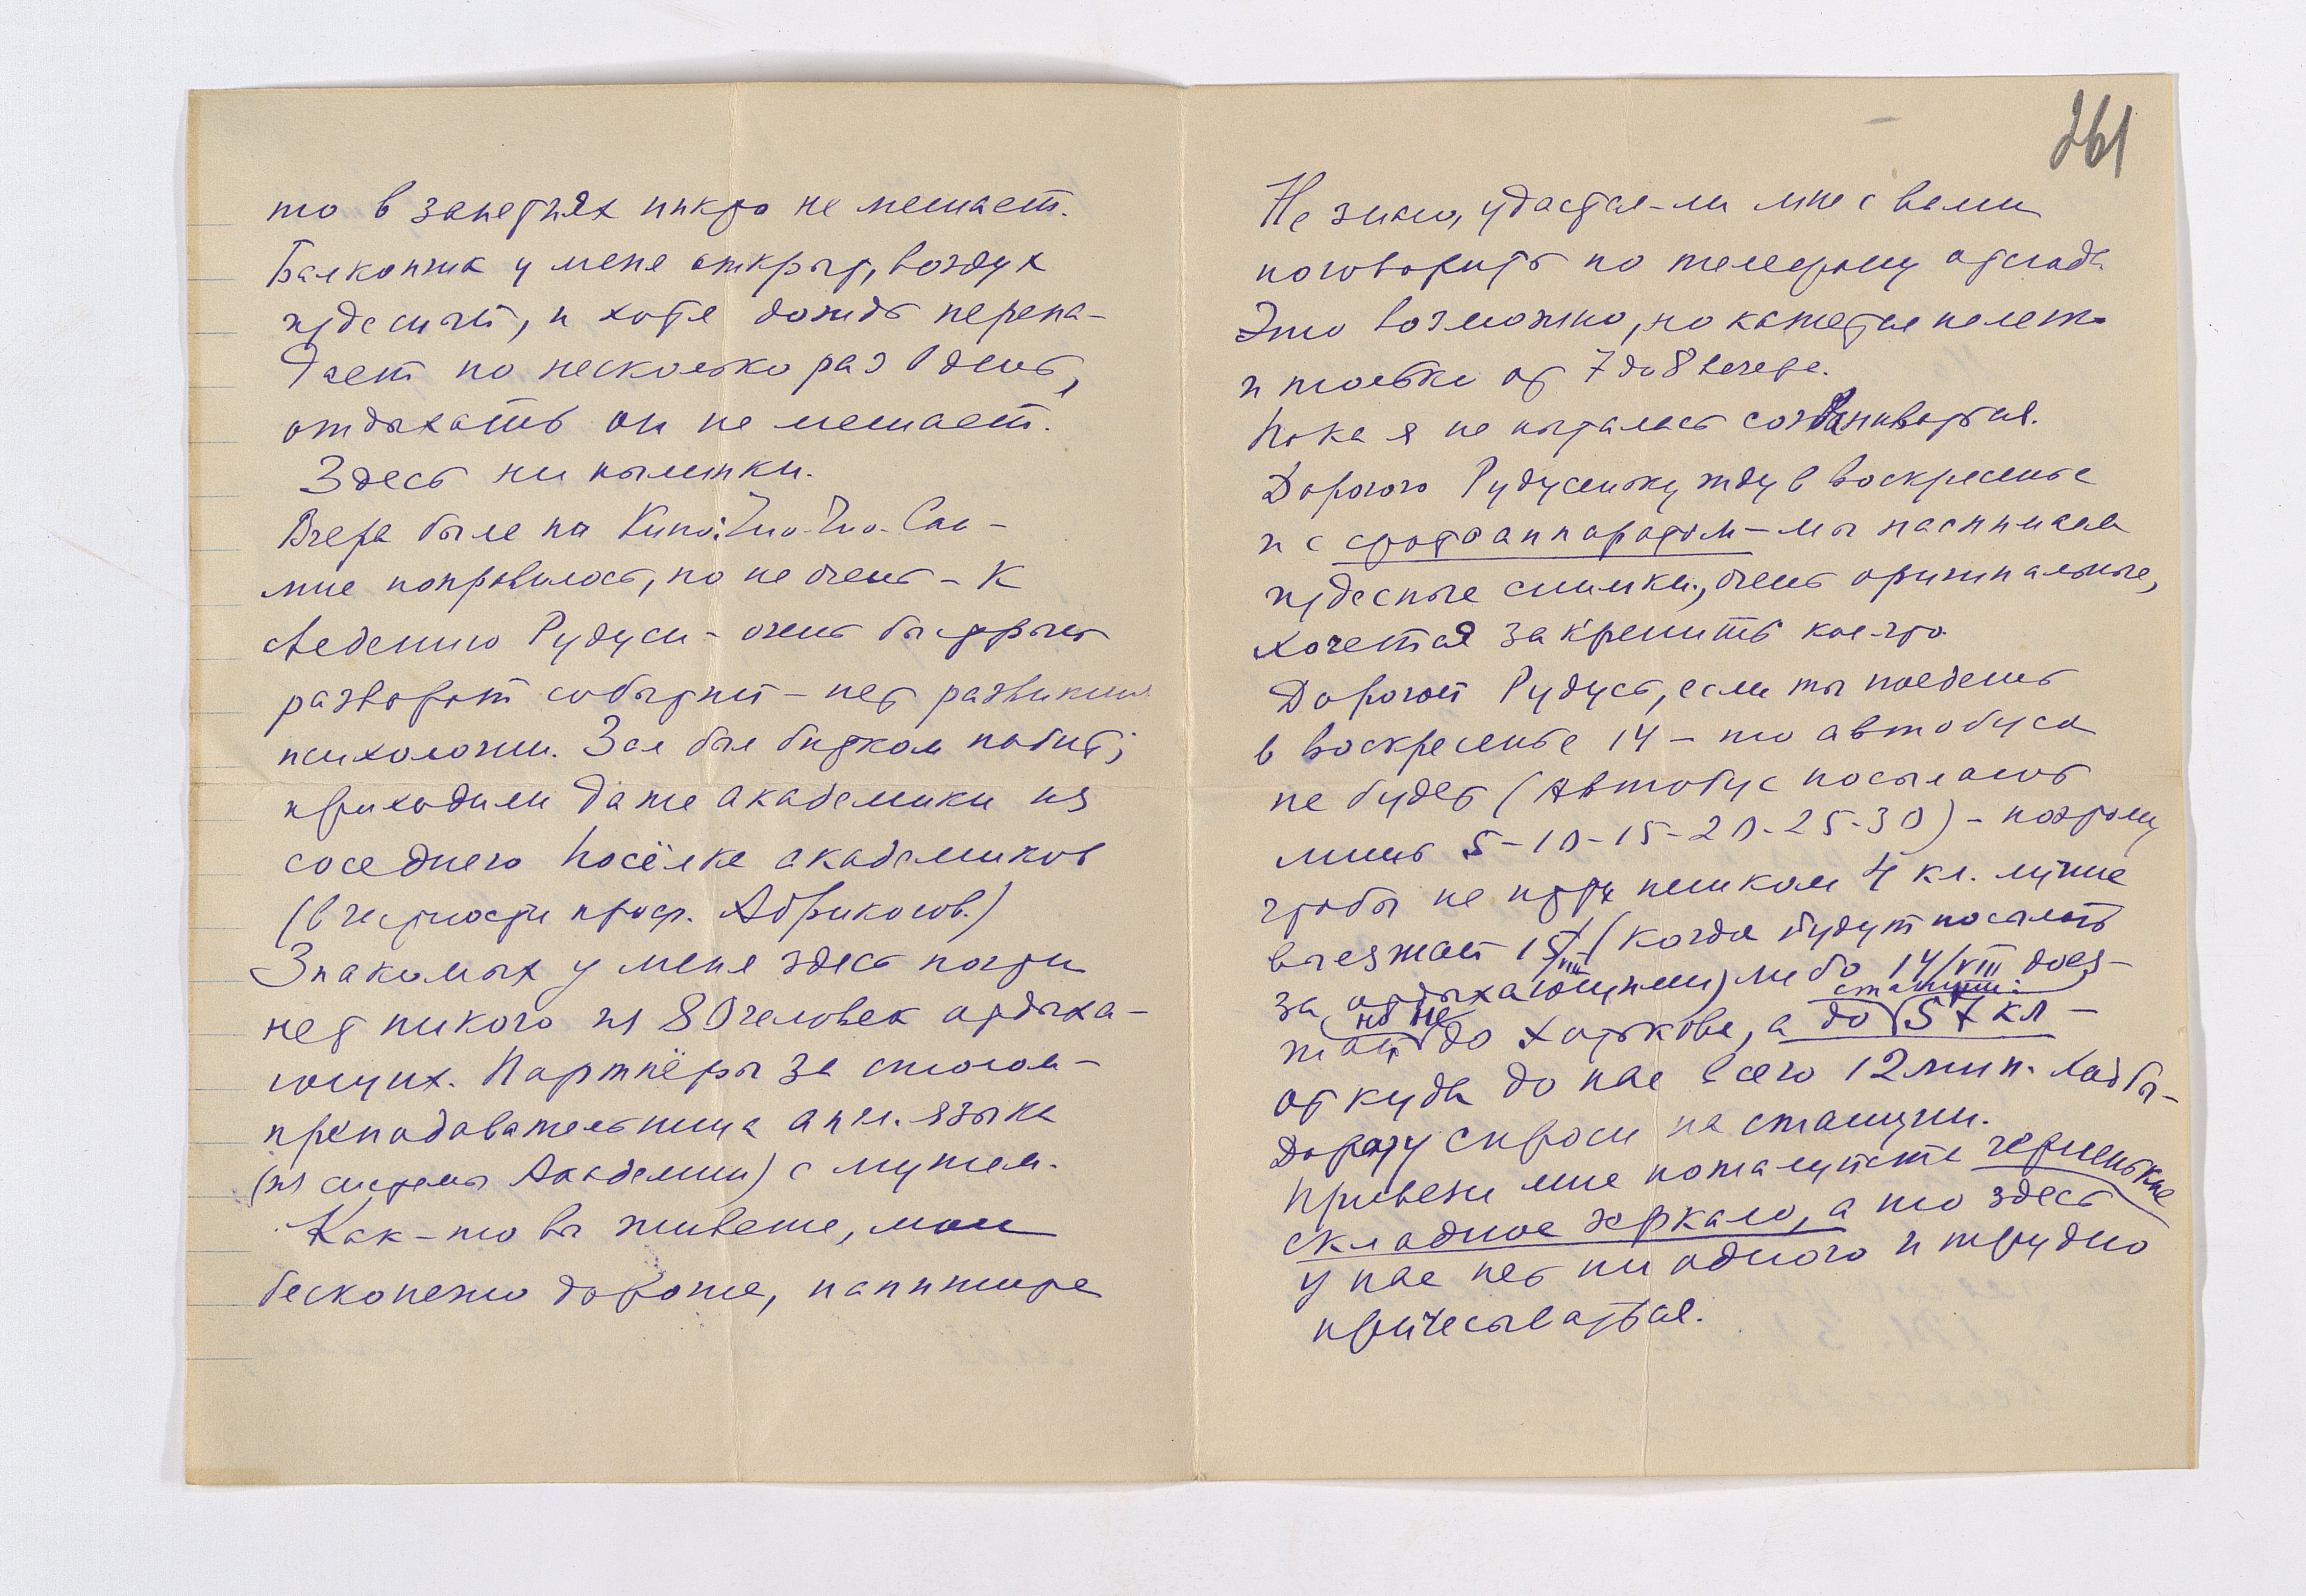 то в занятиях никто не мешает.
Балкончик у меня открыт, воздух
чудесный, и хотя дождь перепа-
дает по несколько раз в день,
отдыхать он не мешает.
Здесь ни пылинки.
Вчера была на Кино: Чио-Чио-Сан -
мне понравилось, но не очень - К
сведению Рудуси - очень быстрый
разворот событий - нет развития
психологии. Зал был битком набит;
приходили даже академики из
соседнего посёлка академиков
(в частности проф. Абрикосов.)
Знакомых у меня здесь почти
нет никого из 80 человек отдыха-
ющих. Партнёры за столом -
преподавательница англ. языка
(из системы Академии) с мужем.
Как-то вы живете, мои
бесконечно дорогие, напишите
261
Не знаю, удастся-ли мне с вами
поговорить по телефону отсюда
Это возможно, но кажется не легко
и только от 7 до 8 вечера.
Пока я не пыталась созваниваться.
Дорогого Рудусеньку жду в воскресенье
и с фотоаппаратом - мы наснимаем
чудесные снимки, очень оригинальные,
хочется закрепить кое-что.
Дорогой Рудусь, если ты поедешь
в воскресенье 14 - то автобуса
не будет (Автобус посылают
лишь 5-10-15-20-25-30) - поэтому
чтобы не идти пешком 4 кл. лучше
выезжай 15/VIII (когда будут посылать
за отдыхающими) либо 14/VIII доез-
жай но не до Хотькова, а до станции: 57 кл -
откуда до нас всего 12 мин. ходьбы -
Дорогу спроси на станции.
Привези мне пожалуйста черненькие
складное зеркало, а то здесь
у нас нет ни одного и трудно
причесываться.